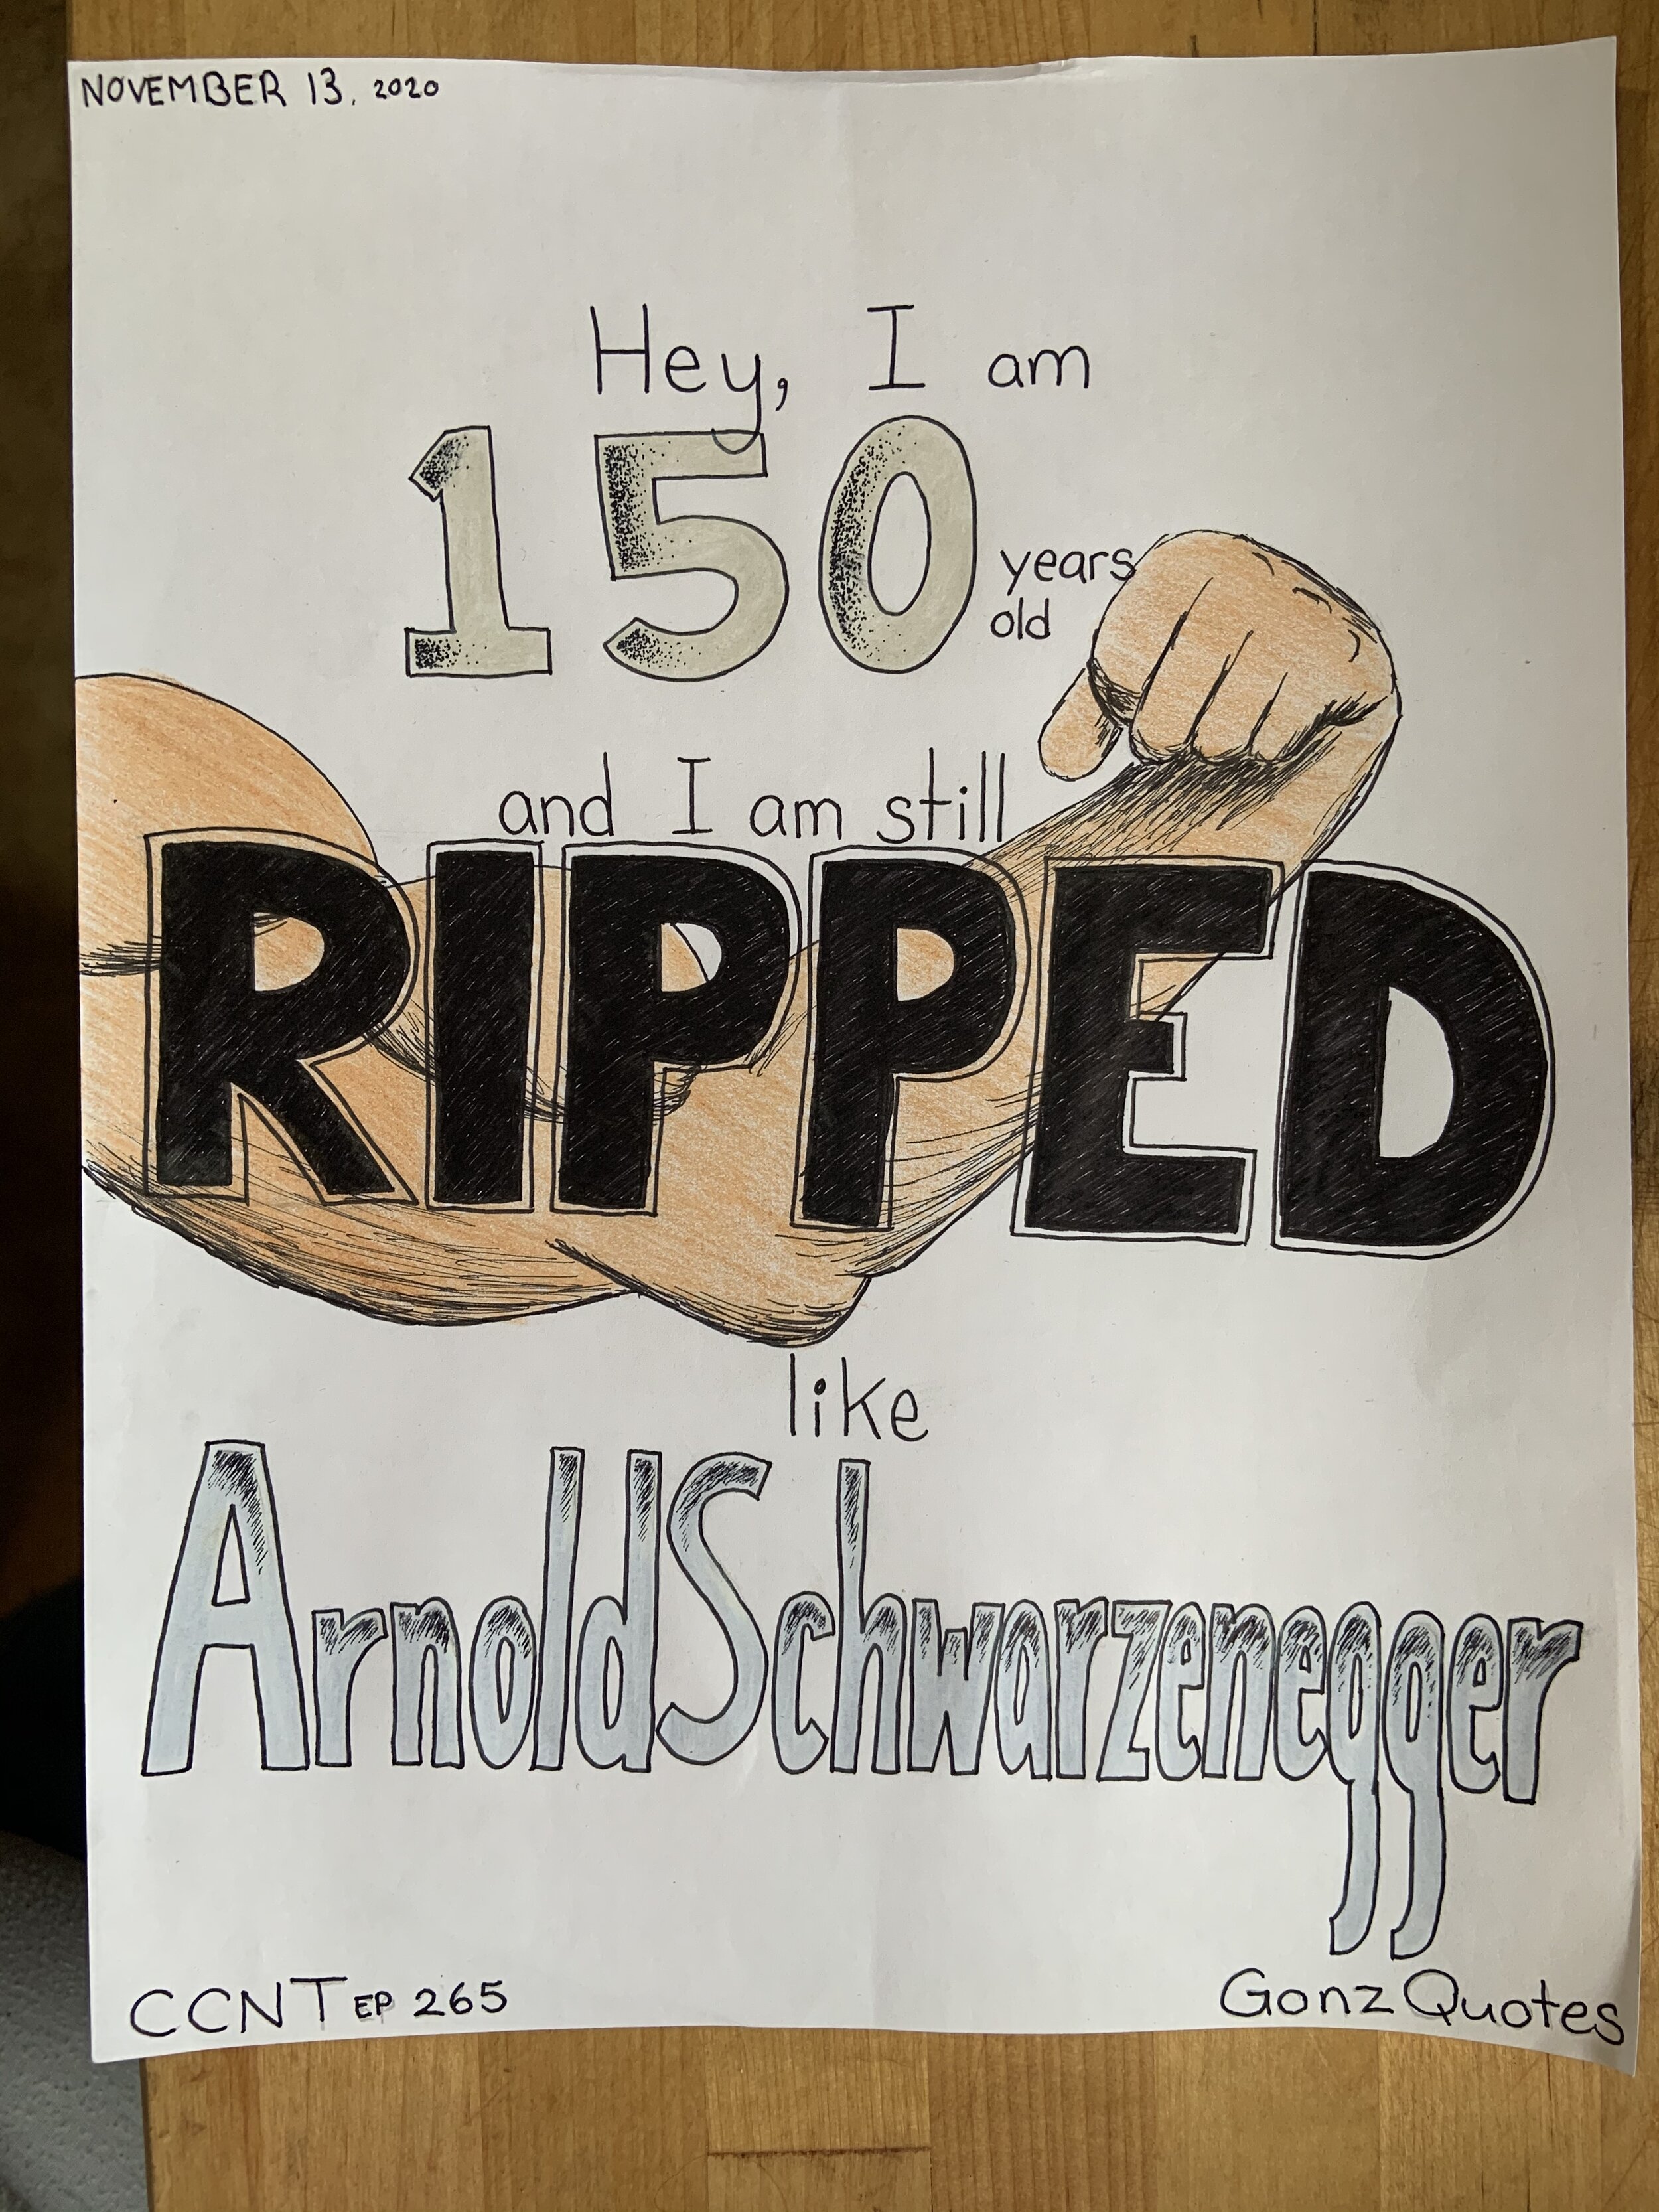 NOVEMBER 13, 2020
Hey, I am
150
years
old
and I am still
RIPPED
like
Arnold Schwarzenegger
CCNT EP 265
Gonz Quotes